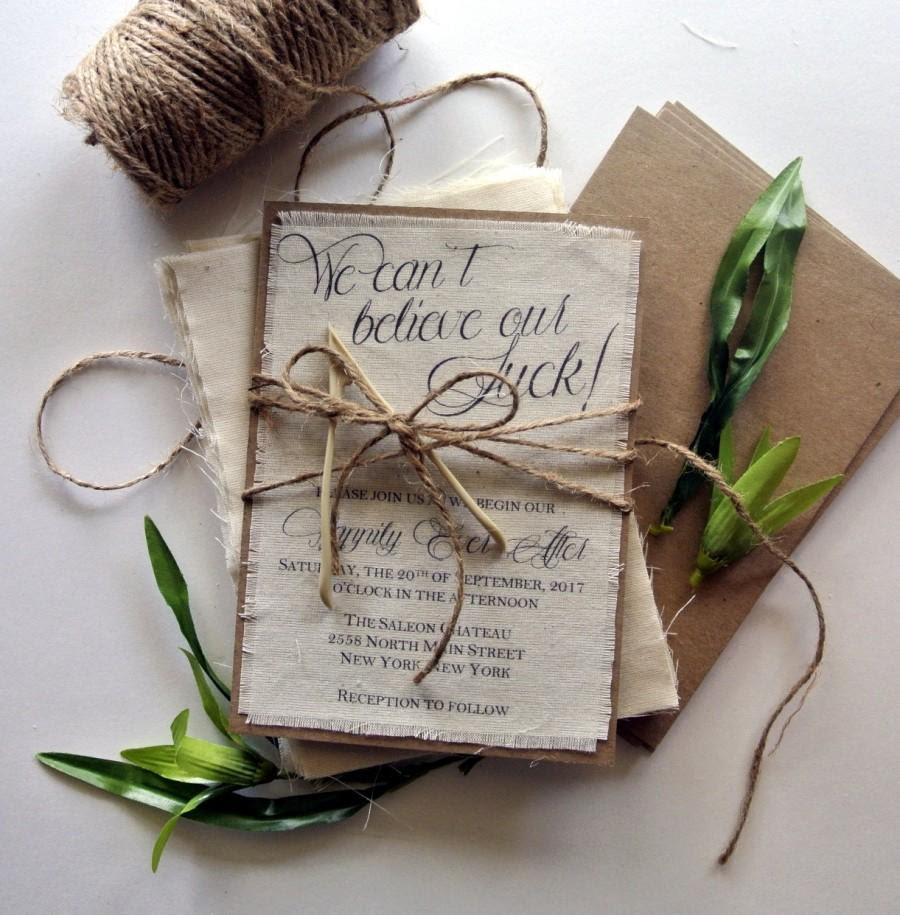 We can't
believe our
Luck!
PLEASE JOIN US AS WE BEGIN OUR
Happily Ever After
SATURDAY, THE 20TH OF SEPTEMBER, 2017
O'CLOCK IN THE AFTERNOON
THE SALEON CHATEAU
2558 NORTH MAIN STREET
NEW YORK, NEW YORK
RECEPTION TO FOLLOW